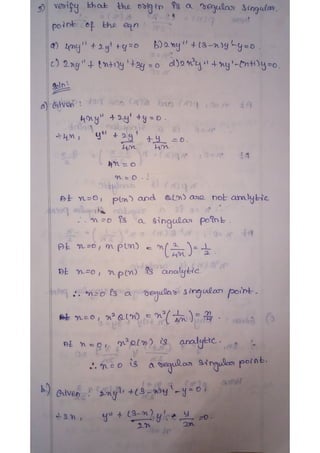 5) verify that the origin is a regular singular
point of the eqn
a) 4xy'' + 2y' + y = 0 b) 2xy'' + (3-x)y' - y = 0
c) 2xy'' + (x+1)y' + 3y = 0 d) 2x²y'' + xy' - (x+1)y = 0
Soln:
a) Given: 4xy'' + 2y' + y = 0.
÷4x, y'' + 2y'/4x + y/4x = 0.
4x = 0
x = 0.
At x=0, p(x) and Q(x) are not analytic
∴ x=0 is a singular point.
At x=0, x p(x) = x(2/4x) = 1/2
At x=0, x p(x) is analytic
∴ x=0 is a regular singular point.
At x=0, x²Q(x) = x²(1/4x) = x/4
At x=0, x²Q(x) is analytic.
∴ x=0 is a regular singular point.
b) Given: 2xy'' + (3-x)y' - y = 0,
÷2x, y'' + (3-x)/2x y' - y/2x = 0.